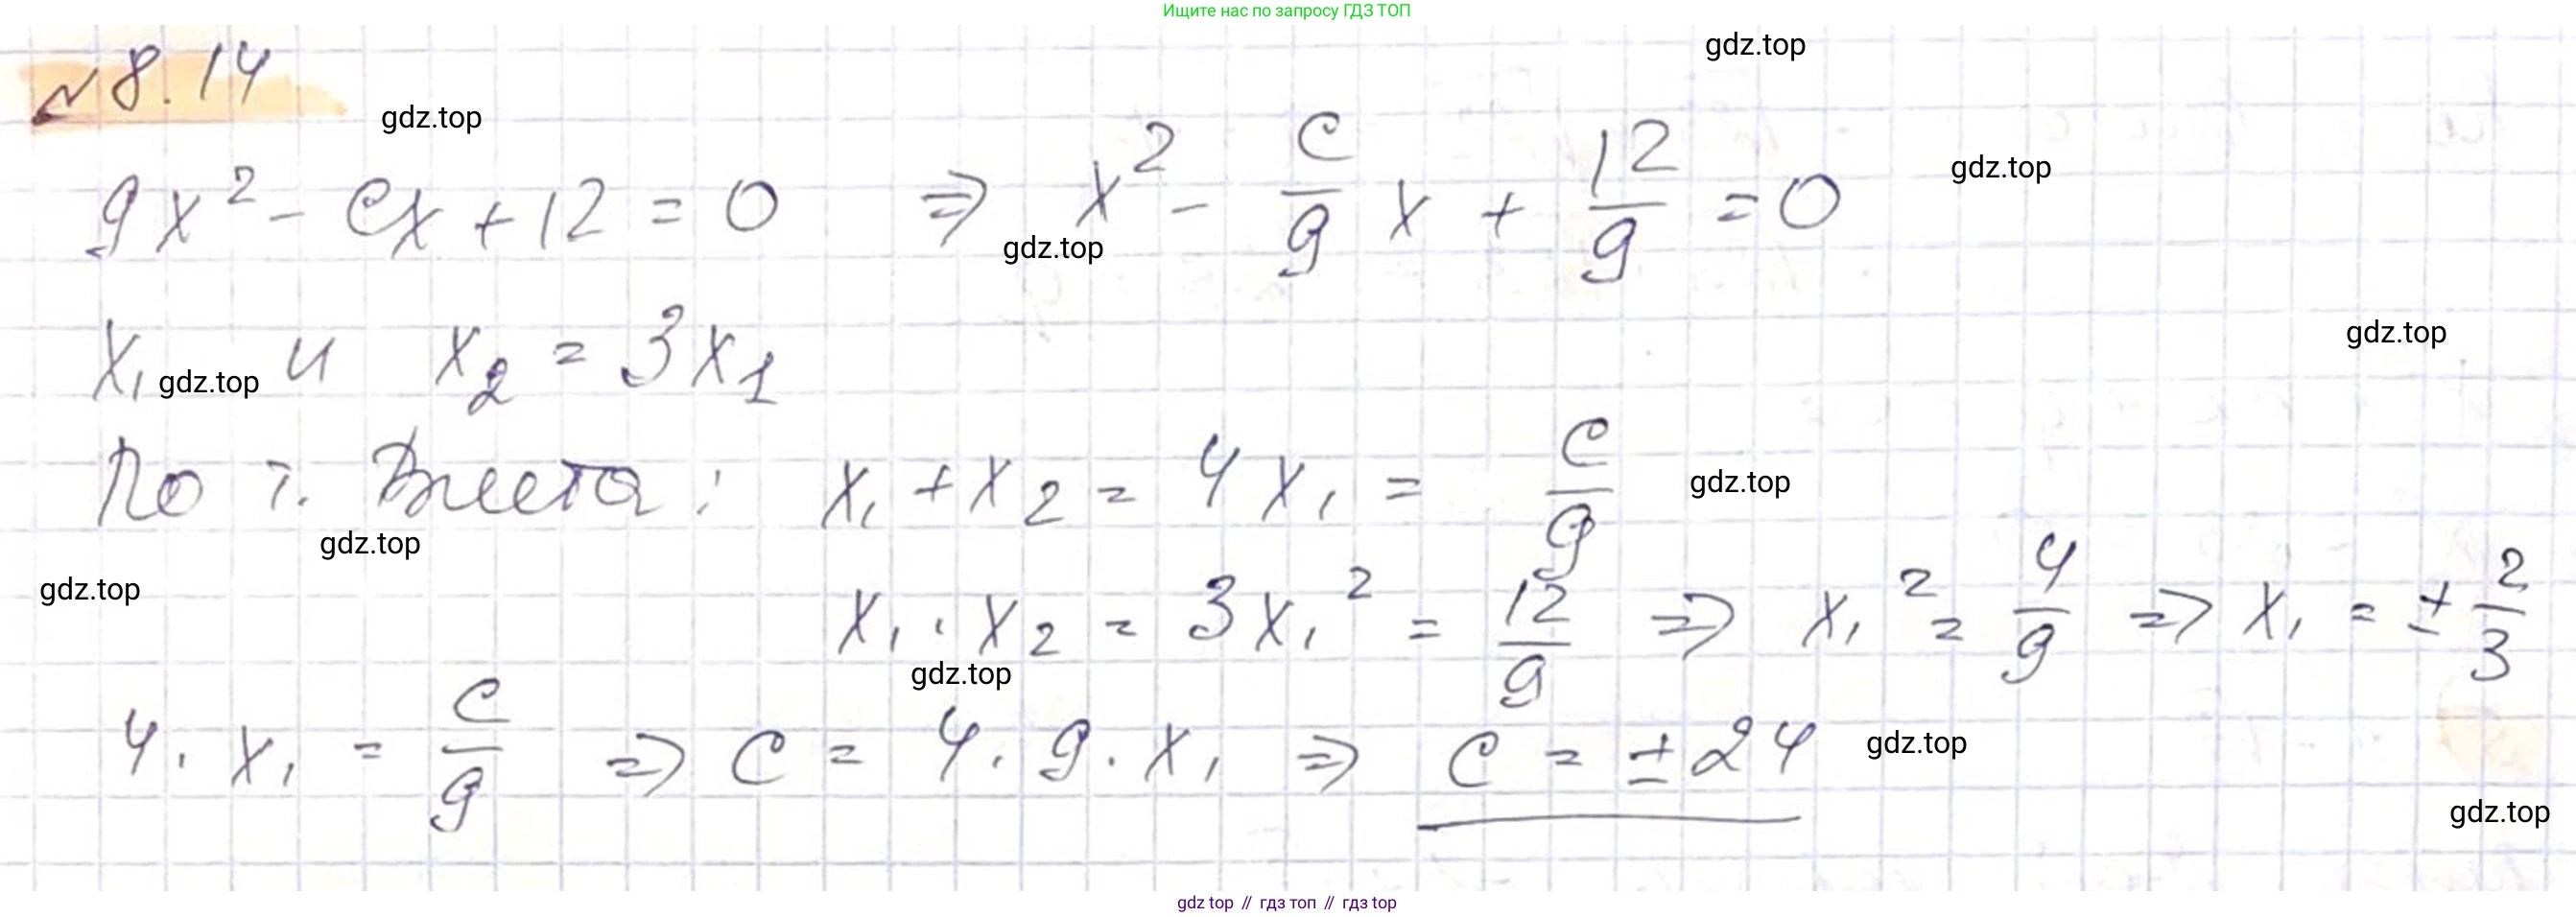 Ищите нас по запросу ГДЗ ТОП
gdz.top
№ 8.14
gdz.top
9x² - cx + 12 = 0 ⇒ x² - c/9 x + 12/9 = 0
gdz.top
gdz.top
gdz.top
x₁ и x₂ = 3x₁
gdz.top
По т. Виета: x₁ + x₂ = 4x₁ = c/9
gdz.top
gdz.top
gdz.top
x₁ · x₂ = 3x₁² = 12/9 ⇒ x₁² = 4/9 ⇒ x₁ = ± 2/3
gdz.top
4 · x₁ = c/9 ⇒ c = 4 · 9 · x₁ ⇒ c = ± 24
gdz.top
gdz.top
gdz top // гдз топ // гдз top